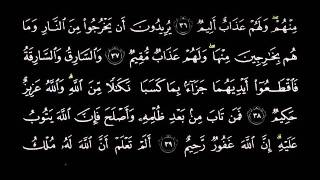 مِنْهُمْ ۖ وَلَهُمْ عَذَابٌ أَلِيمٌ ﴿٣٦﴾ يُرِيدُونَ أَن يَخْرُجُوا۟ مِنَ ٱلنَّارِ وَمَا
هُم بِخَـٰرِجِينَ مِنْهَا ۖ وَلَهُمْ عَذَابٌ مُّقِيمٌ ﴿٣٧﴾ وَٱلسَّارِقُ وَٱلسَّارِقَةُ
فَٱقْطَعُوٓا۟ أَيْدِيَهُمَا جَزَآءًۢ بِمَا كَسَبَا نَكَـٰلًا مِّنَ ٱللَّهِ ۗ وَٱللَّهُ عَزِيزٌ
حَكِيمٌ ﴿٣٨﴾ فَمَن تَابَ مِنۢ بَعْدِ ظُلْمِهِۦ وَأَصْلَحَ فَإِنَّ ٱللَّهَ يَتُوبُ
عَلَيْهِ ۗ إِنَّ ٱللَّهَ غَفُورٌ رَّحِيمٌ ﴿٣٩﴾ أَلَمْ تَعْلَمْ أَنَّ ٱللَّهَ لَهُۥ مُلْكُ